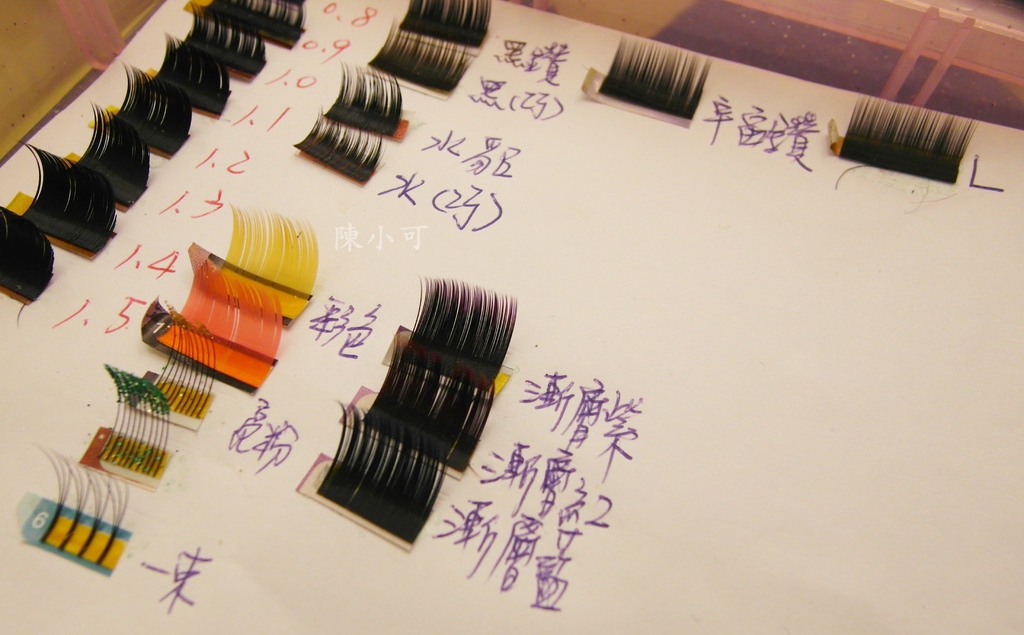 0.8
0.9
1.0
1.1
1.2
1.3
1.4
1.5
黑鑽
黑(巧)
水貂
水(巧)
辛富鑽
L
陳小可
彩色
亮粉
一束
漸層紫
漸層紅
漸層藍
6